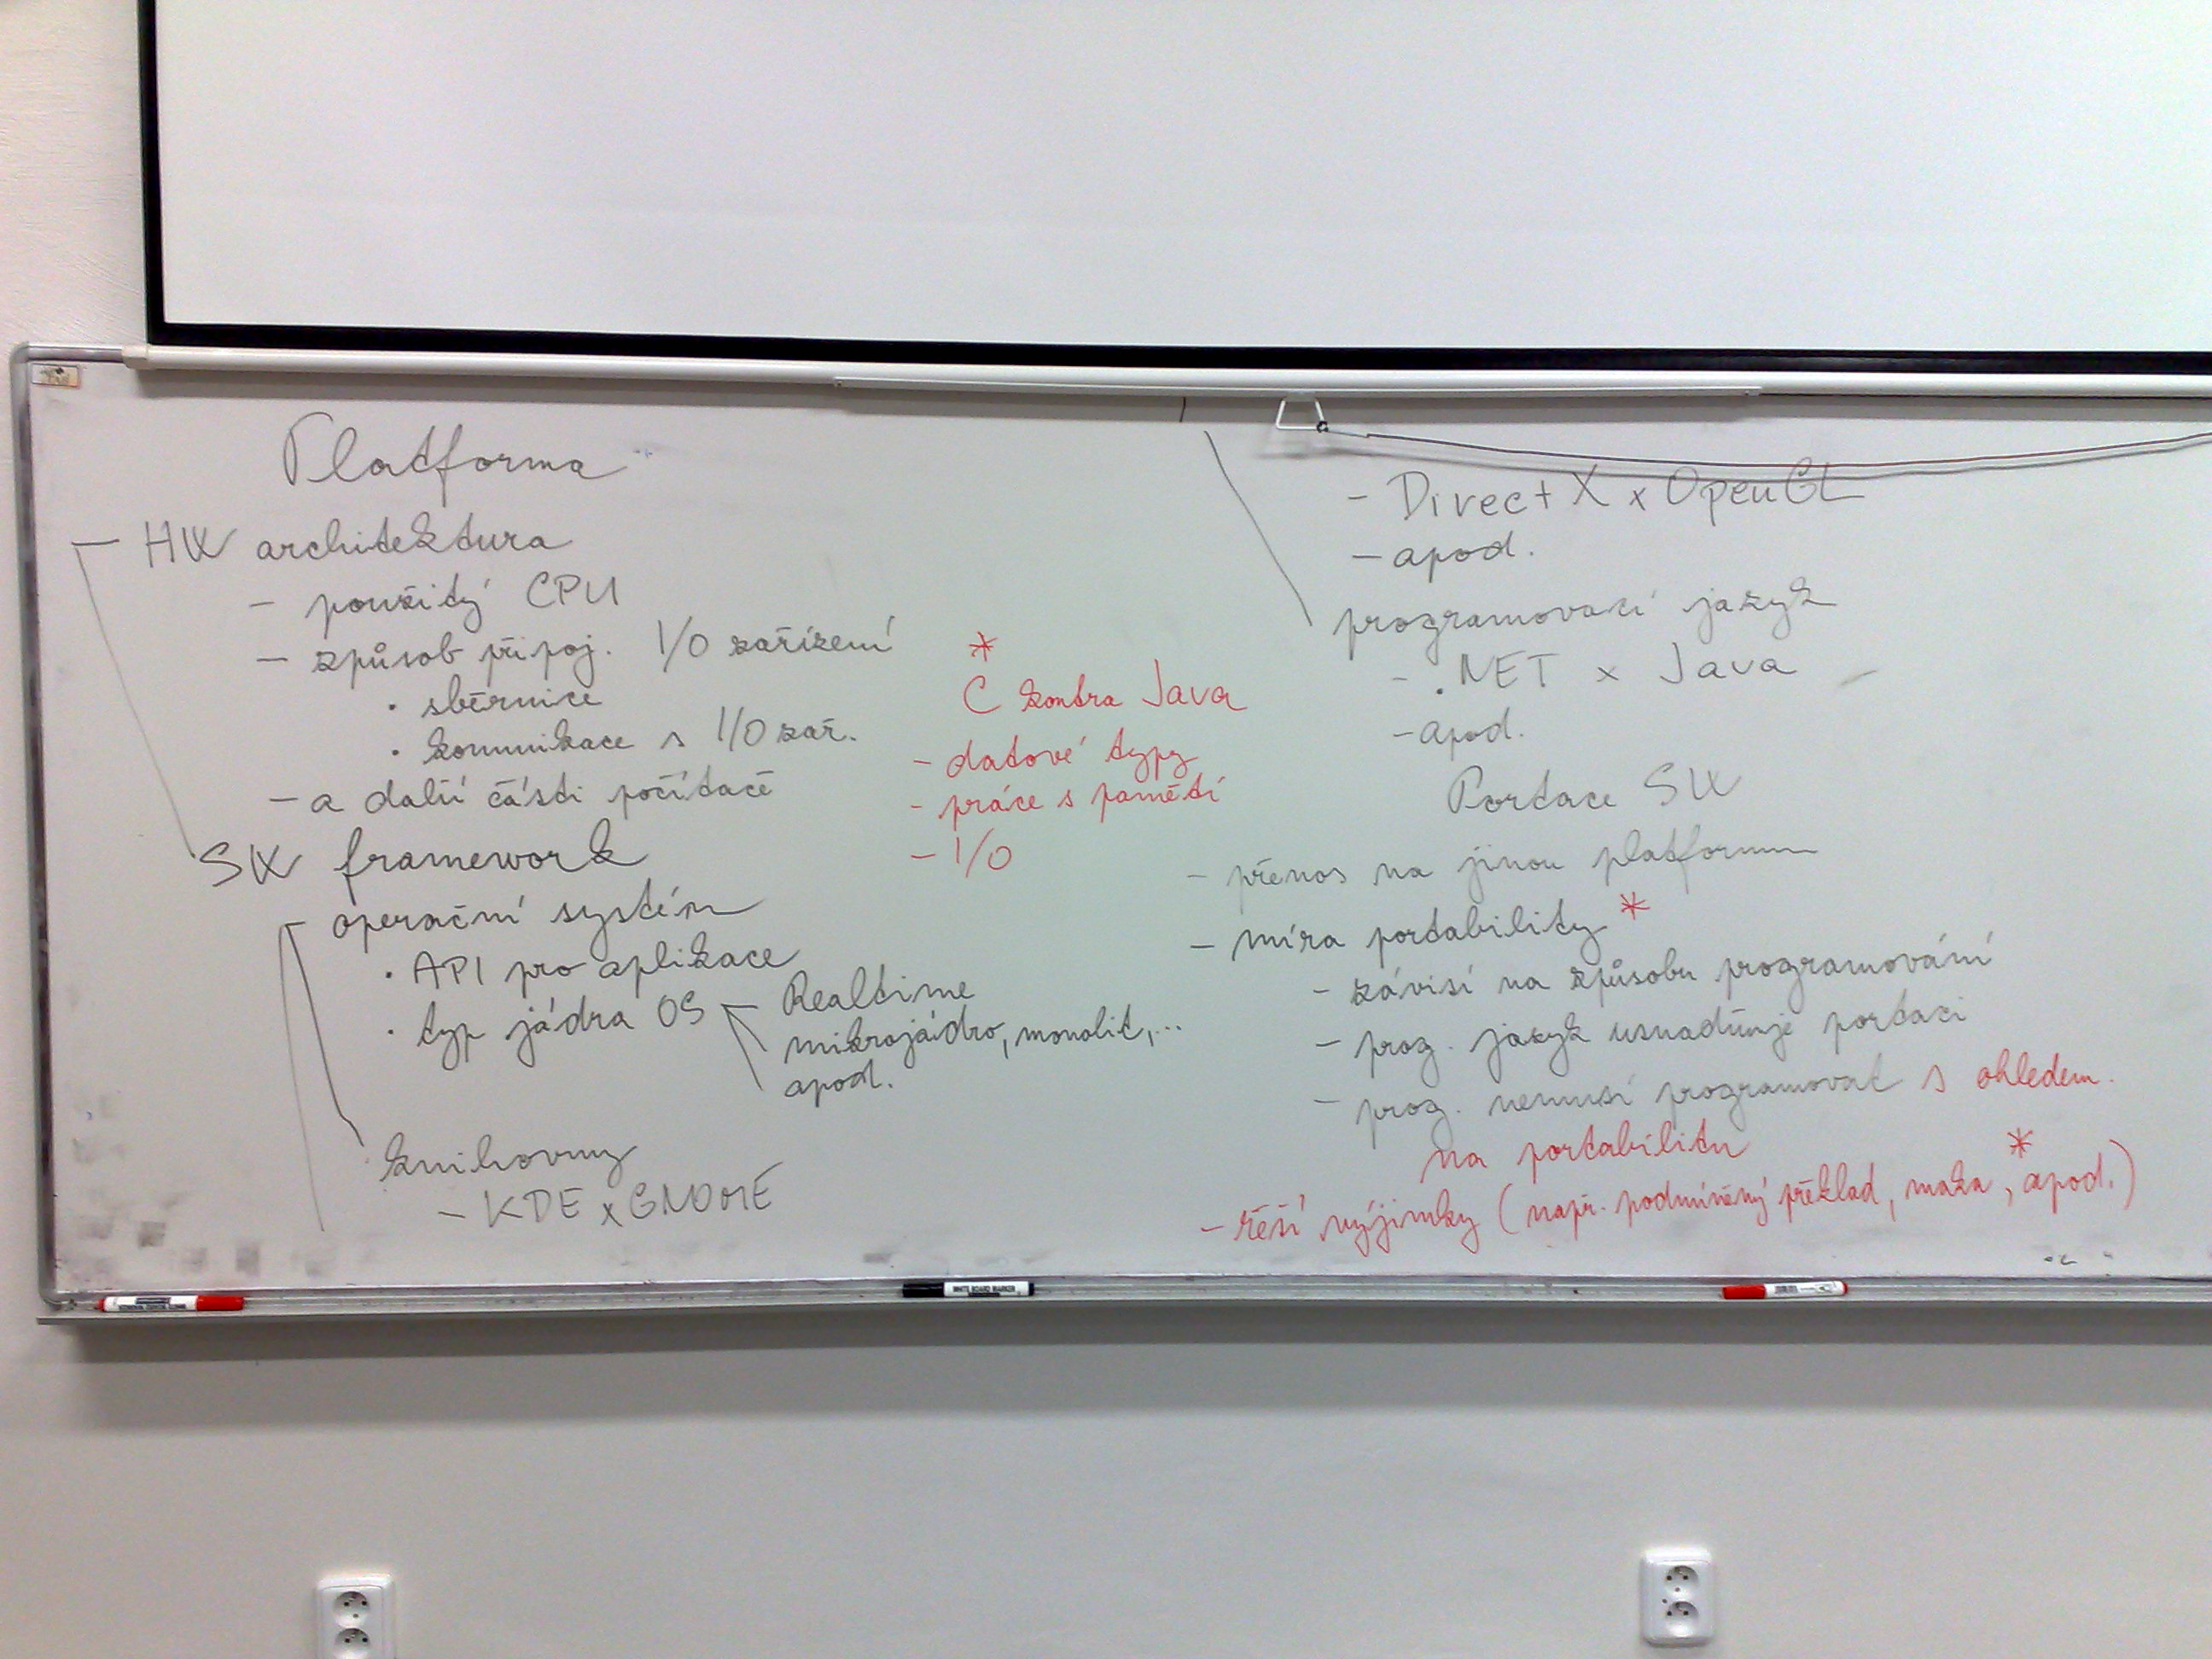 Platforma
- HW architektura
- použitý CPU
- způsob připoj. I/O zařízení
• sběrnice
• komunikace s I/O zař.
- a další části počítače
SW framework
- operační systém
• API pro aplikace
• typ jádra OS - Realtime
mikrojádro, monolit, ...
apod.
knihovny
- KDE x GNOME
*
C kontra Java
- datové typy
- práce s pamětí
- I/O
- DirectX x OpenGL
- apod.
programovací jazyk
- .NET x Java
- apod.
Portace SW
- přenos na jinou platformu
- míra portability *
- závisí na způsobu programování
- prog. jazyk usnadňuje portaci
- prog. nemusí programovat s ohledem
na portabilitu
*
- řeší výjimky (např. podmíněný překlad, makra, apod.)
WHITE BOARD MARKER